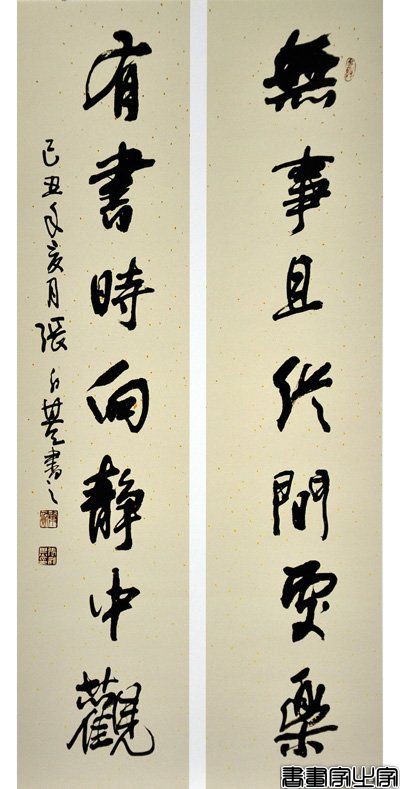 無事且從閒處樂
有書時向靜中觀
己丑年亥月張書之
書畫家之家